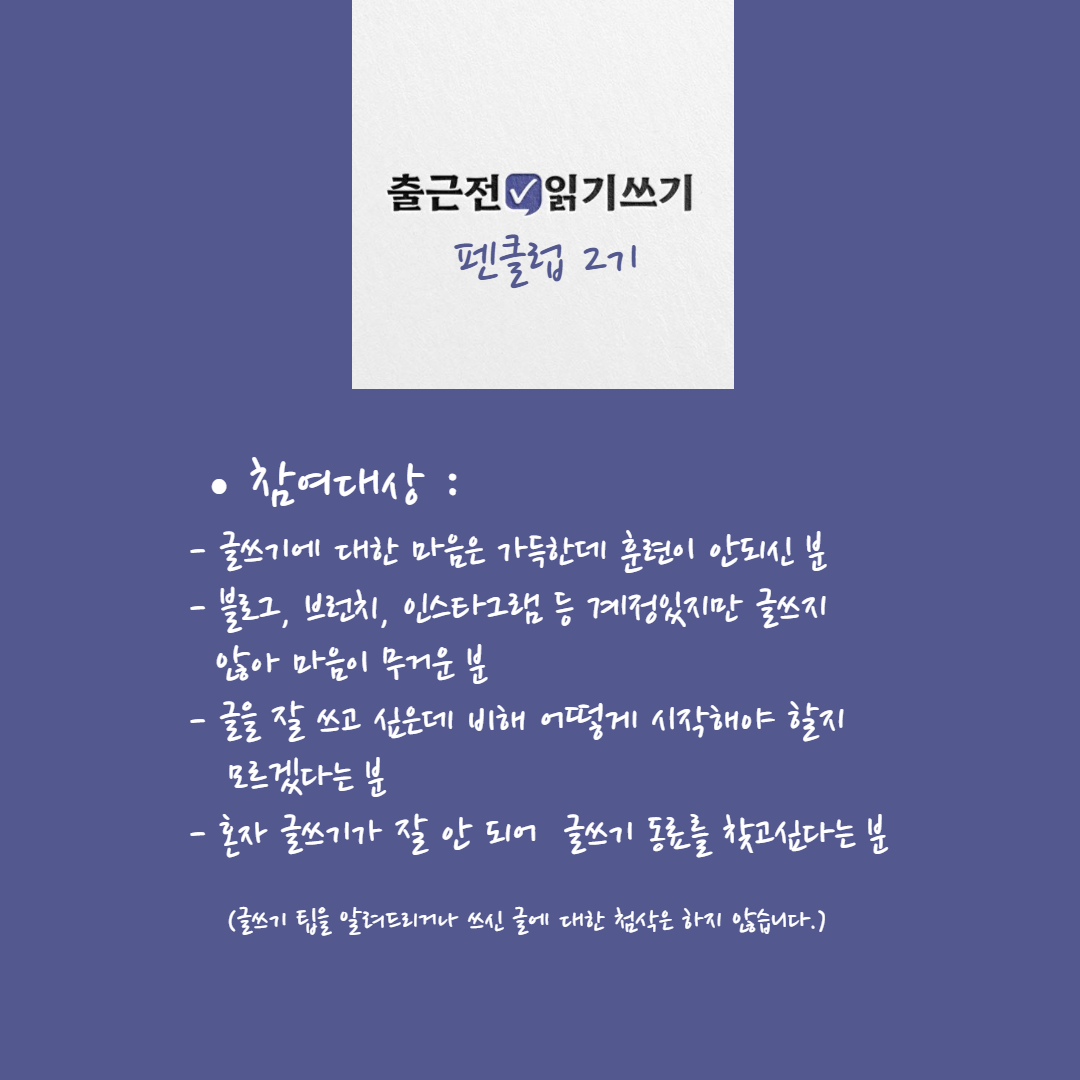 출근전 읽기쓰기
펜클럽 2기
• 참여대상 :
- 글쓰기에 대한 마음은 가득한데 훈련이 안되신 분
- 블로그, 브런치, 인스타그램 등 계정있지만 글쓰지
않아 마음이 무거운 분
- 글을 잘 쓰고 싶은데 비해 어떻게 시작해야 할지
모르겠다는 분
- 혼자 글쓰기가 잘 안 되어 글쓰기 동료를 찾고싶다는 분
(글쓰기 팁을 알려드리거나 쓰신 글에 대한 첨삭은 하지 않습니다.)